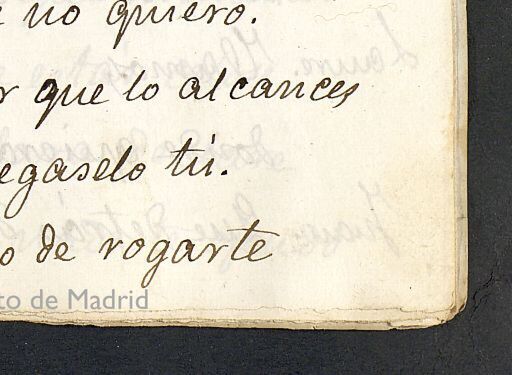 no quiero.
que lo alcances
egaselo tú.
o de rogarte
to de Madrid